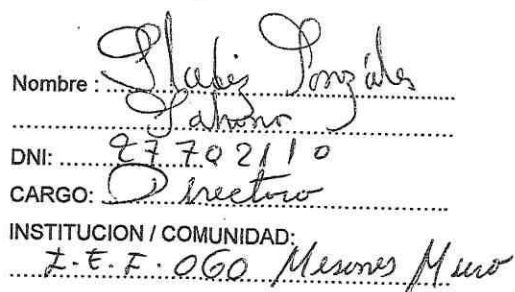 Nombre : Gladiz Gonzáles
Fabiana
DNI: 27702110
CARGO: Directora
INSTITUCION / COMUNIDAD:
I.E.I. 060 Mesones Muro